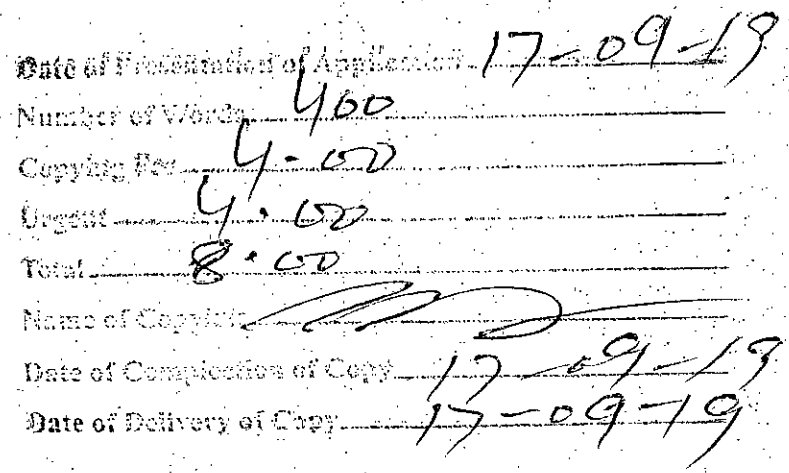 Date of Presentation of Application 17-09-19
Number of Words 400
Copying Fee 4-00
Urgent 4.00
Total 8.00
Name of Copyist
Date of Completion of Copy 17-09-19
Date of Delivery of Copy 17-09-19